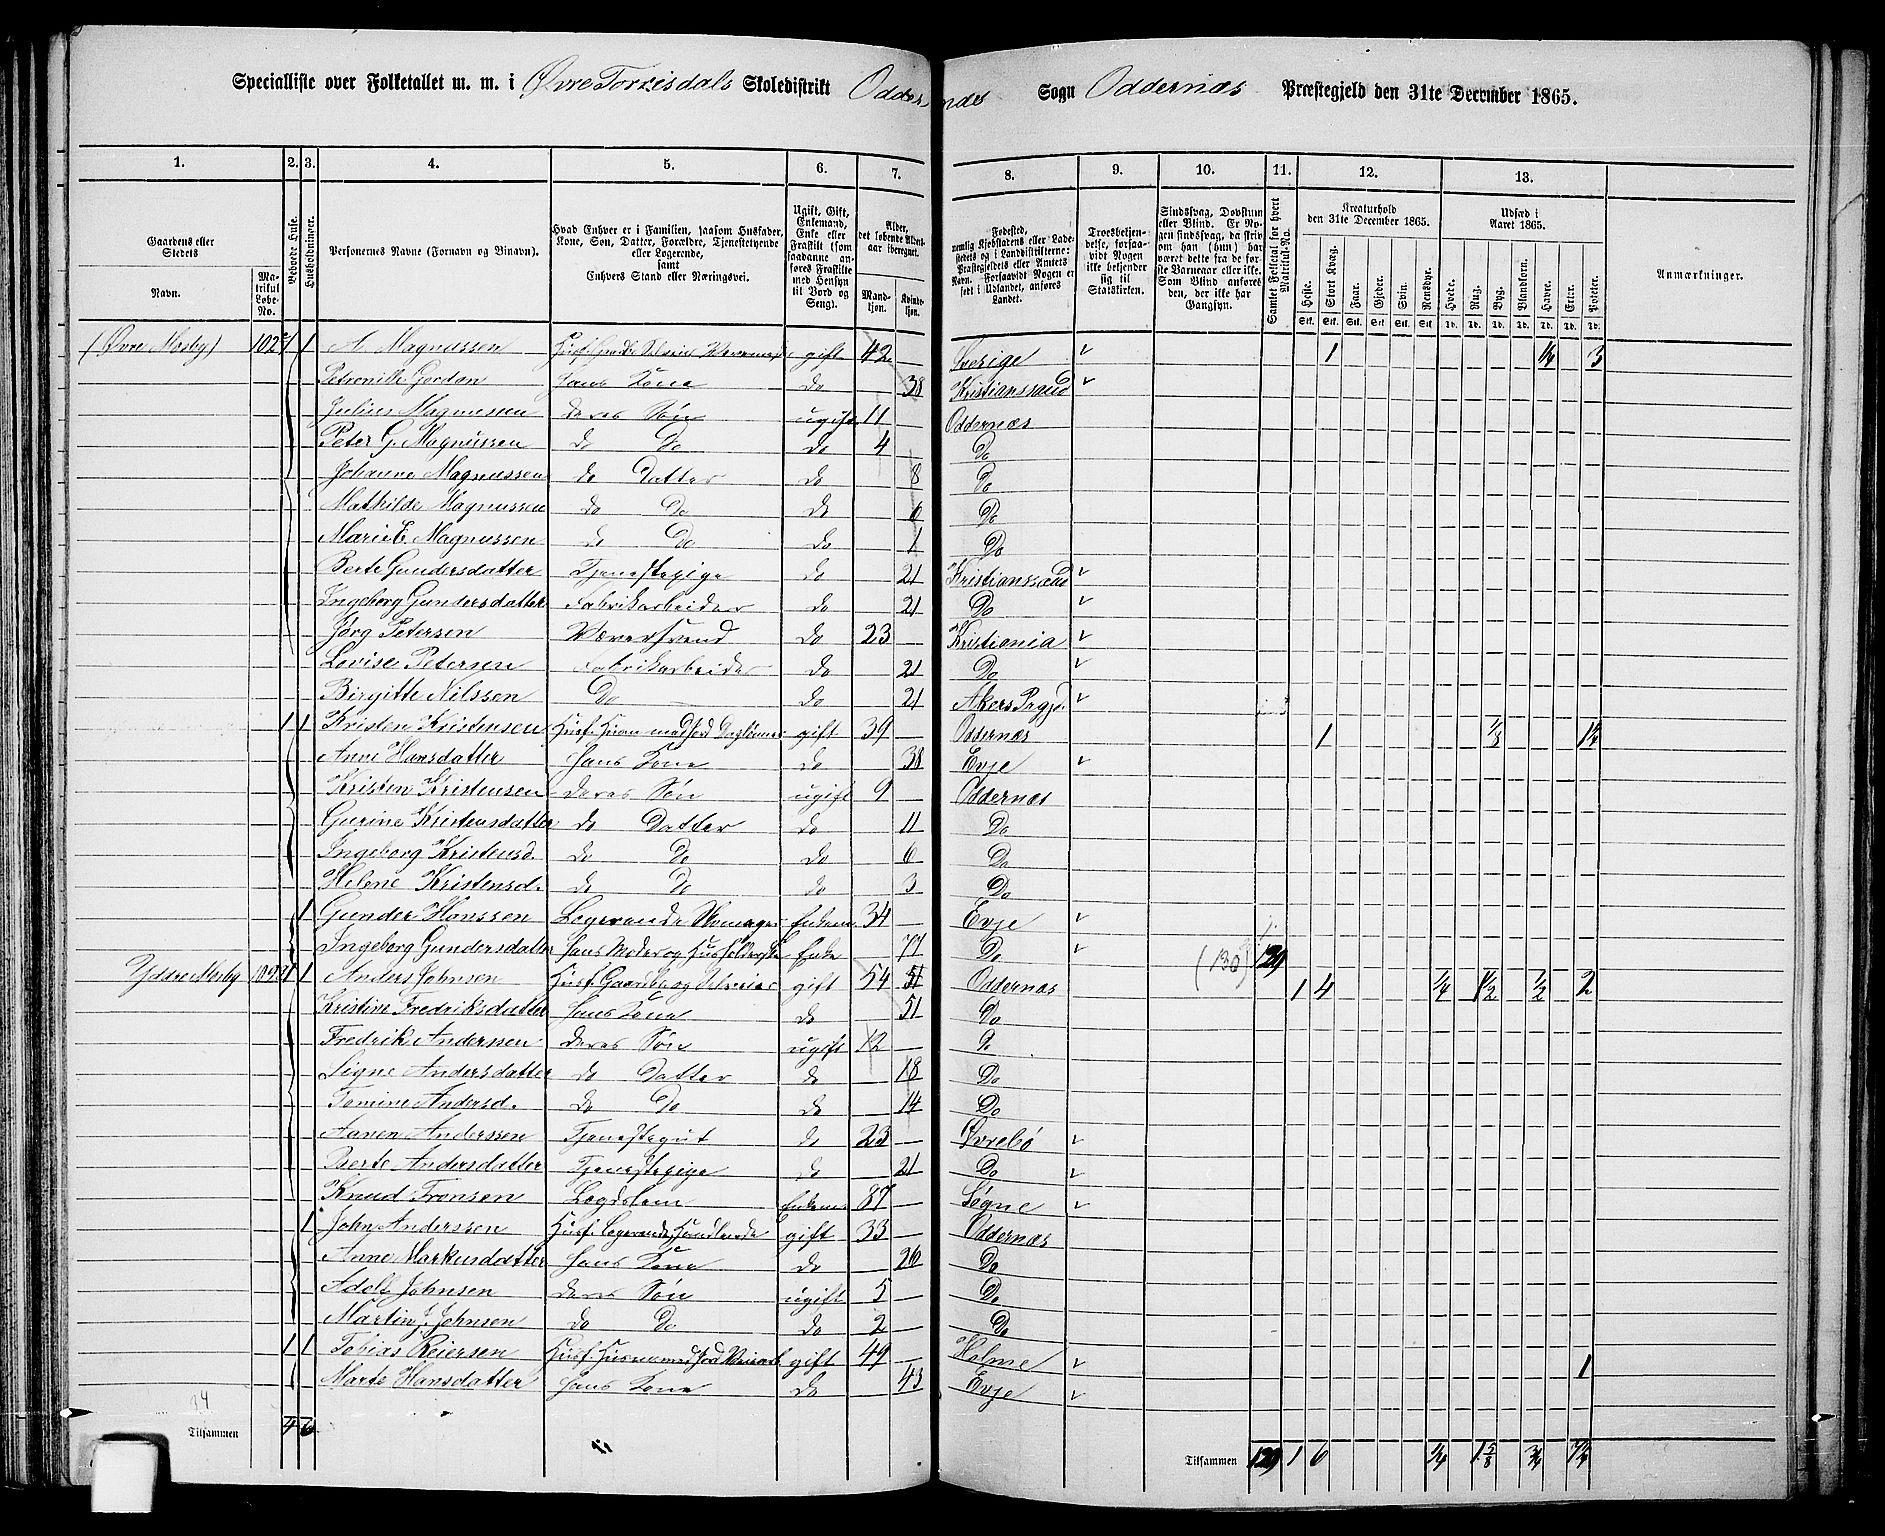 Specialliste over Folketallet m. m. i Øvre Torrisdals Skoledistrikt Oddernæs Sogn Oddernæs Præstegjeld den 31te December 1865.
1. 2. 3. 4. 5. 6. 7. 8. 9. 10. 11. 12. 13.
Gaardens eller Stedets Navn. Matrikul Løbe-No. Beboede Huse. Husholdninger. Personernes Navne (Fornavn og Binavn). Hvad Enhver er i Familien, saasom Husfader, Kone, Søn, Datter, Forældre, Tjenestetyende eller Logerende, samt Enhvers Stand eller Næringsvei. Ugift, Gift, Enkemand, Enke eller Fraskilt (som saadanne anføres Fraskilte med Hensyn til Bord og Seng). Alder, det løbende Alders-aar iberegnet. Mandkjøn. Kvindekjøn.
Anmærkninger.
Kreaturhold den 31te December 1865. Heste. Stort Kvæg. Faar. Gjeder. Svin. Rensdyr.
Udsæd i Aaret 1865. Hvede. Rug. Byg. Blandkorn. Havre. Erter. Poteter.
(Øvre Mosby) 102 1 1 A. Magnussen gift 42 Sverige 1 3
Petronille Gordon Hans Kone do 38 Kristianssand
Julius Magnussen deres Søn ugift 11 Oddernæs
Peter G. Magnussen do Do do 4 Do
Johanne Magnussen do Datter do 8 Do
Mathilde Magnussen do Do do 6 Do
Magnussen do Do do 1 Do
Berte Gundersdatter Tjenestepige do 21 Kristianssand
Ingeborg Gundersdatter Fabrikarbeider do 21 Do
Jørg Petersen Væversvend do 23 Kristiania
Lovise Petersen Fabrikarbeider do 21 Do
Birgitte Nilssen Do do 21 Akers Prgj.
1 1 Kristen Kristensen gift 39 Oddernæs 1
Anne Hansdatter Hans Kone do 38 Evje
Kristen Kristensen deres Søn ugift 9 Oddernæs
Gurine Kristensdatter do Datter do 11 Do
Ingeborg Kristensd. do Do do 6 Do
Helene Kristensd. do Do do 3 Do
1 Gunder Hanssen Logerende Skomager Enkem. 34 Evje
Ingeborg Gundersdatter Hans Moder og Husholderske Enke 77 Do (130) 129
Ydre Mosby 1 1 Anders Johnsen Husf. Gaardbr. og Selveier gift 54 Oddernæs 1 4 1/4 1 1/2 1/2 2
Kristine Fredriksdatter Hans Kone do 51 Do
Fredrik Anderssen deres Søn ugift 12 Do
Signe Andersdatter do Datter do 18 Do
Tomine Andersd. do Do do 14 Do
Aanen Anderssen Tjenestegut do 23 Øvrebø
Berte Andersdatter Tjenestepige do 21 Do
Knud Tronsen Lægdslem Enkem. 87 Søgne
1 John Anderssen Husf. Logerende, Handlende gift 33 Oddernæs
Anne Markusdatter Hans Kone do 26 Do
Adolf Johnsen deres Søn ugift 5 Do
Martin J. Johnsen do Do do 2 Do
1 1 Tobias Reiersen gift 49 Holme 1
Marte Hansdatter Hans Kone do 43 Evje
34
Tilsammen 4 6 Tilsammen 129 1 6 1/4 1 5/8 3/4